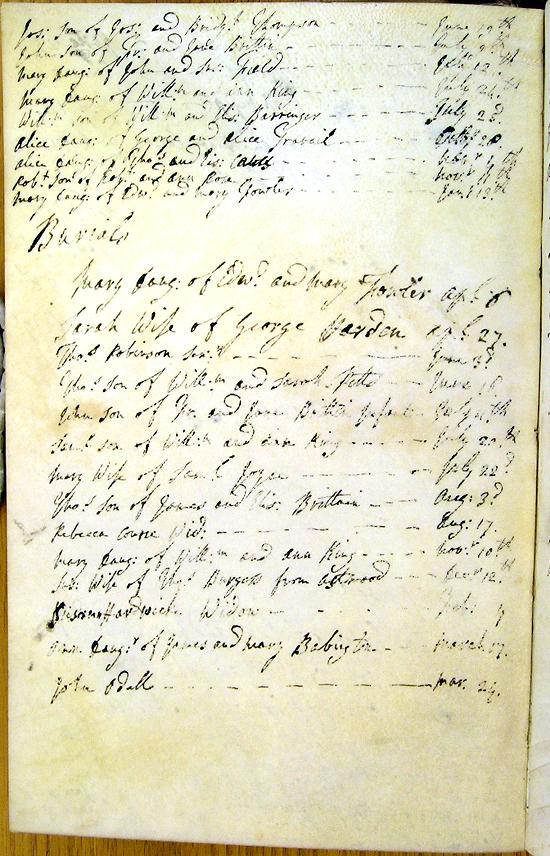 Jos: son of Jos: and Bridgt Thompson - - - June 12th
John son of Jn: and Jane Brittin - - - July
Mary Daug: of John and Feeld - - -
Mary Daug: of Willm and Ann King - - - July 20th
Willm son of Willm and Eliz: Barringer - - July 2d
Alice Daug: of George and Alice Travil - -
Alice Daug: of Thos and Eliz:
Robt son of and Ann - - Novr
Mary Daug: of Edwd and Mary Fowler - - Janr 13th
Burials
Mary Daug: of Edwd and Mary Fowler apl: 8
Sarah Wife of George Harden apl: 27.
Thos Robinson Senr - - - June 3d
Thos son of Willm and Sarah Potts - - June 18
John son of Jn: and Jane Brittin Infant - July
Saml son of Willm and Ann King - - - July 20th
Mary Wife of Saml Joyce - - - July 22d
Thos son of James and Eliz: Brittain - - Aug: 3d
Rebecca Wid: - - - Aug: 17.
Mary Daug: of Willm and Ann King - - - Novr 10th
Wife of Thos Burgess from Astwood - - Decr 12th
Hardwick Widow - - - 9
Ann Daugr of James and Mary Babington - - March 17.
John Odell - - - - - Mar. 24.